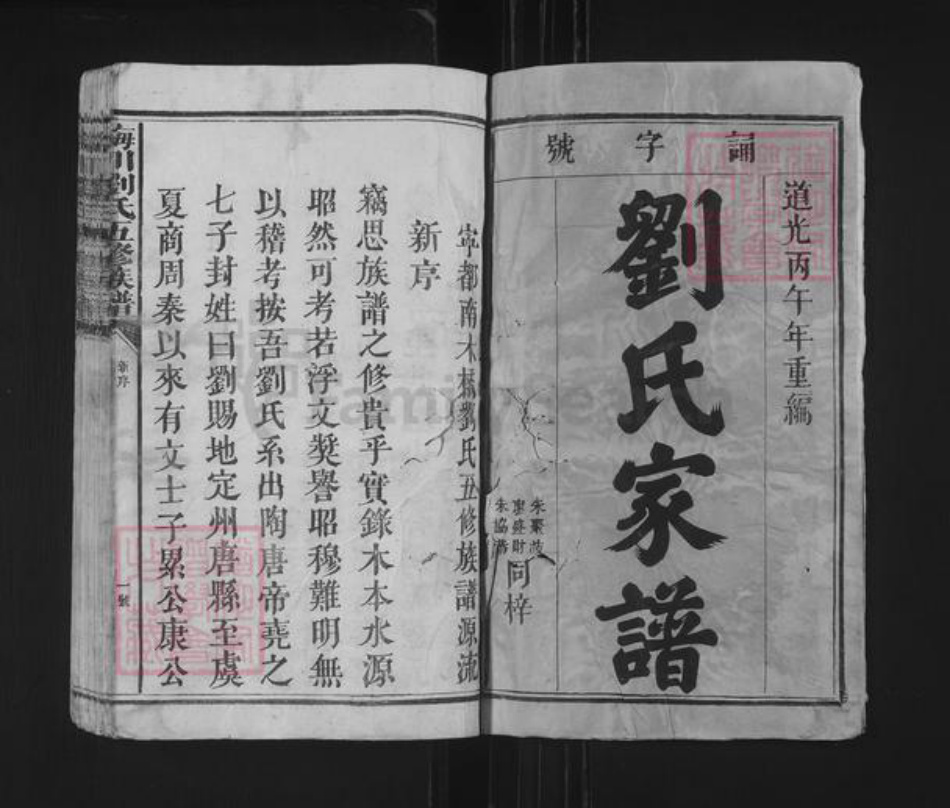 誦字號
道光丙午年重編
劉氏家譜
同梓
寧都南木楙劉氏五修族譜源流
新序
竊思族譜之修貴乎實錄木本水源
昭然可考若浮文獎譽昭穆難明無
以稽考按吾劉氏系出陶唐帝堯之
七子封姓曰劉賜地定州唐縣至虞
夏商周秦以來有文士子累公康公
梅川劉氏五修族譜
新序